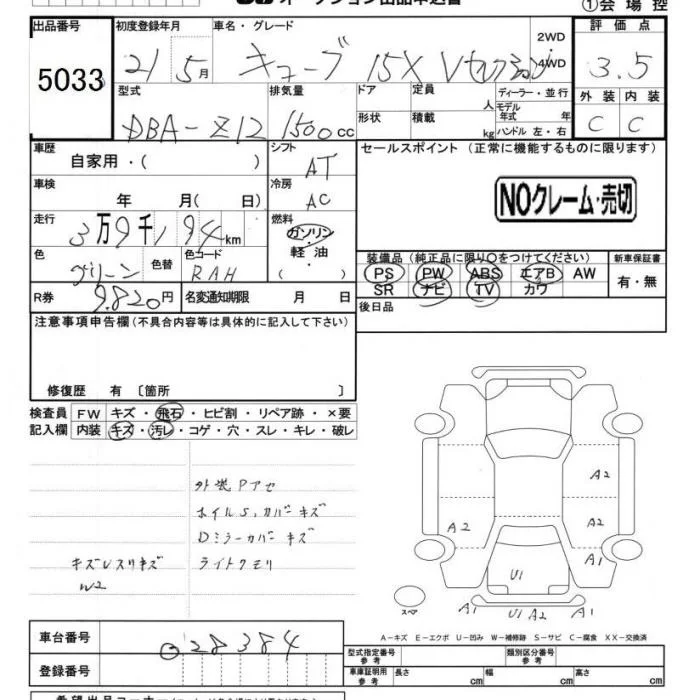 オークション出品申込書
①会場控
出品番号 初度登録年月 車名・グレード 2WD 4WD 評価点
5033 21 5月 キューブ 15X 3.5
型式 排気量 ドア 定員 人 ディーラー・並行 外装 内装
モデル年式 年
DBA-Z12 1500cc 形状 積載 kg ハンドル 左・右 C C
車歴 自家用・( ) シフト AT セールスポイント (正常に機能するものに限ります)
車検 年 月( 日) 冷房 AC
NOクレーム・売切
走行 3万9千194km 燃料 ガソリン
軽油・( )
色 グリーン 色替 色コード RAH
装備品 (純正品に限り○をつけてください) 新車保証書
PS PW ABS エアB AW 有・無
SR ナビ TV カワ
R券 9.820円 名変通知期限 月 日
後日品
注意事項申告欄 (不具合内容等は具体的に記入して下さい)
修復歴 有 〔箇所 〕
検査員 FW キズ・飛石・ヒビ割・リペア跡・×要
記入欄 内装 キズ・汚レ・コゲ・穴・スレ・キレ・破レ
外装Pアセ
ホイルS,カバーキズ
Dミラーカバーキズ
ライトクモリ
W2
A2
A2
A2
A1
U1
スペア
A1 U1 A2 A1
A-キズ E-エクボ U-凹み W-補修跡 S-サビ C-腐食 XX-交換済
車台番号 028384
登録番号
型式指定番号 参考 類別区分番号 参考
車庫証明用 参考 長さ cm 幅 cm 高さ cm